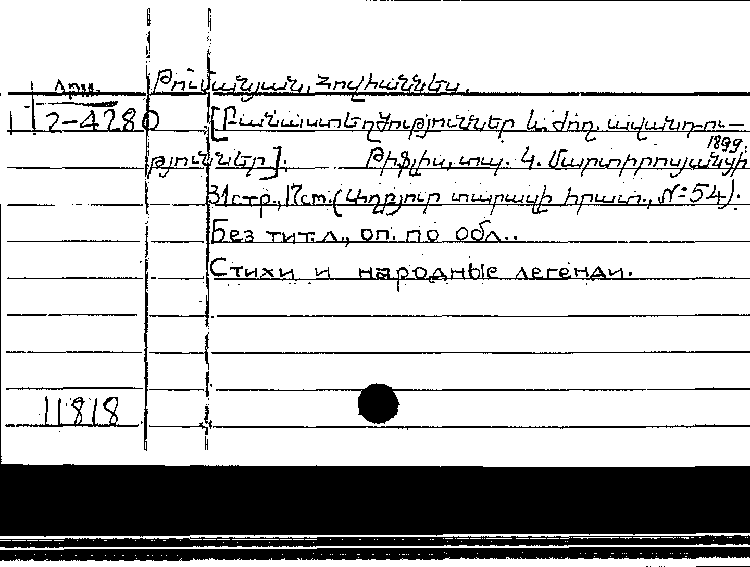 Арм.
Թումանյան, Հովհաննես.
2-4280
[Բանաստեղծություններ և ժող. ավանդու-
թյուններ]. Թիֆլիս, տպ. Կ. Մարտիրոսյանցի
1899.
31стр., 17см. (Աղբյուր տարազի հրատ., №54).
Без тит.л., оп. по обл..
Стихи и народные легенди.
11818